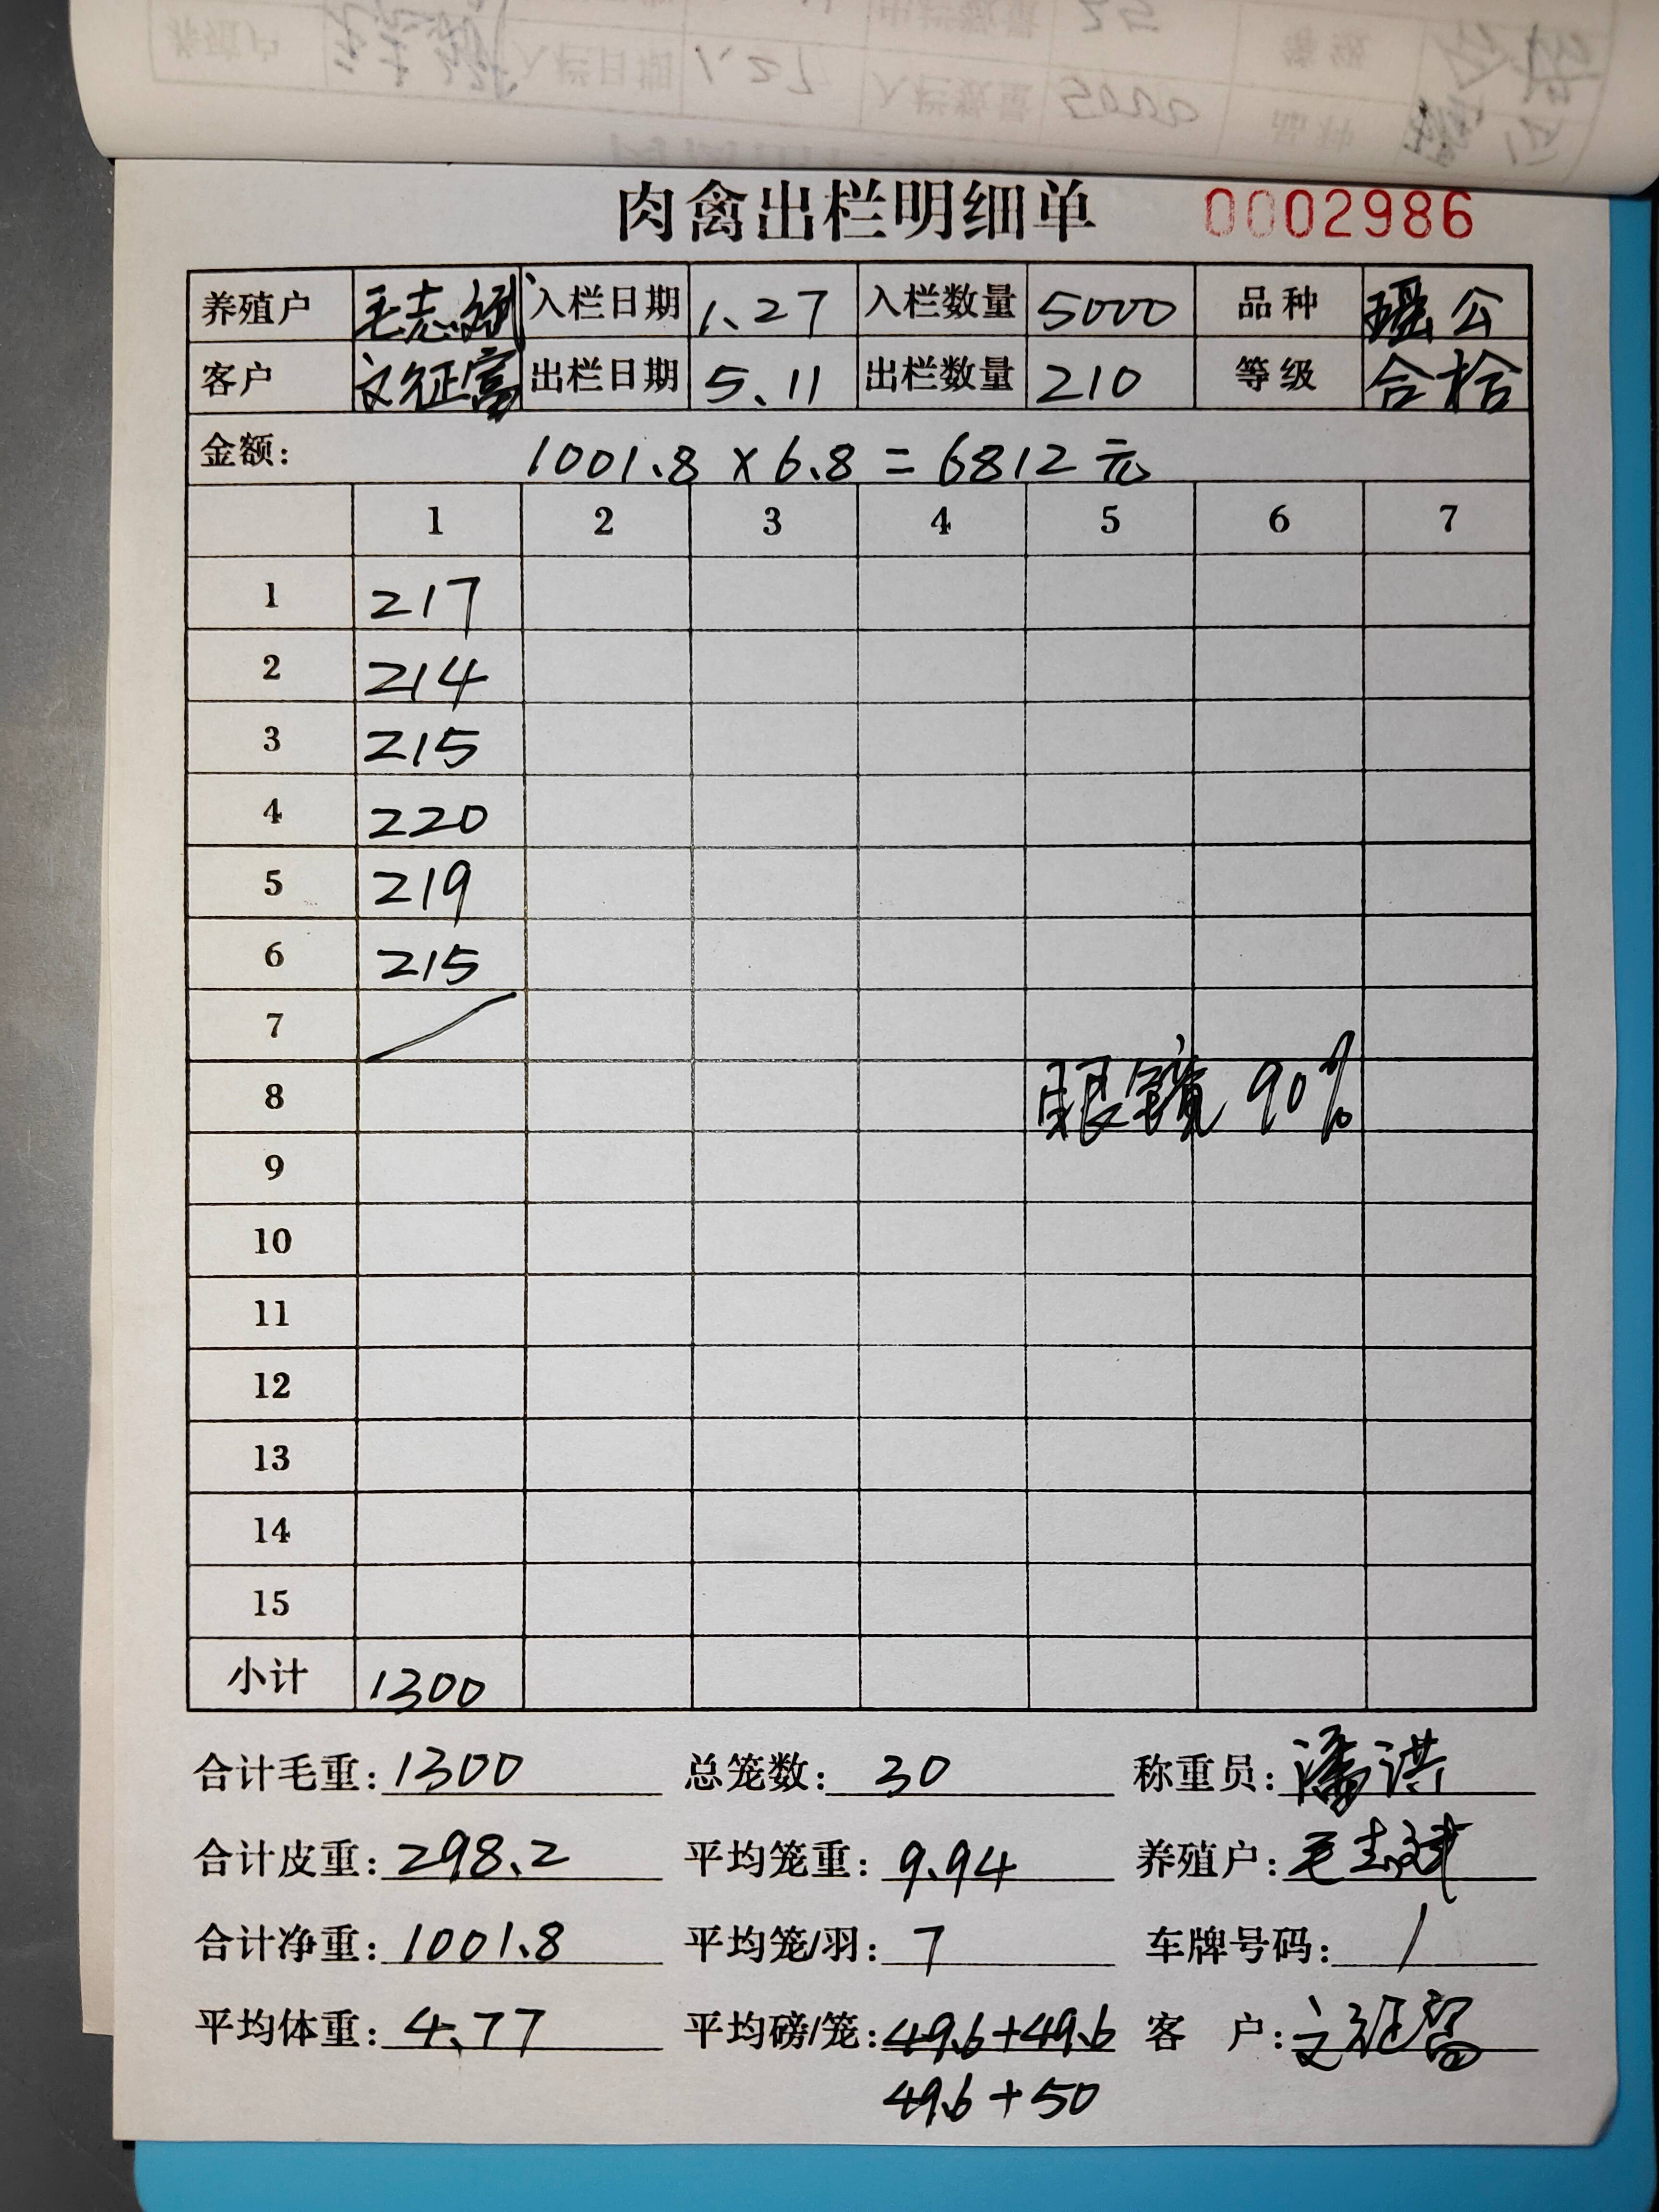 肉禽出栏明细单 0002986
养殖户 毛志斌 入栏日期 1.27 入栏数量 5000 品种 瑶公
客户 文征富 出栏日期 5.11 出栏数量 210 等级 合格
金额: 1001.8 × 6.8 = 6812元
1 2 3 4 5 6 7
1 217
2 214
3 215
4 220
5 219
6 215
7
8 眼镜 90%
9
10
11
12
13
14
15
小计 1300
合计毛重: 1300 总笼数: 30 称重员: 潘洪
合计皮重: 298.2 平均笼重: 9.94 养殖户: 毛志斌
合计净重: 1001.8 平均笼/羽: 7 车牌号码: /
平均体重: 4.77 平均磅/笼: 49.6+49.6 客 户: 文征富
49.6+50